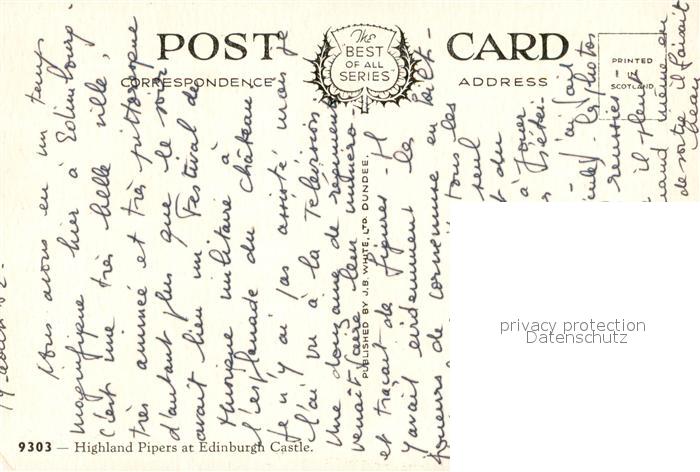 POST CARD
The
BEST
OF ALL
SERIES
CORRESPONDENCE
ADDRESS
PRINTED
IN
SCOTLAND
PUBLISHED BY J.B. WHITE, LTD. DUNDEE.
Nous avons eu un temps
magnifique hier à Edimbourg.
C'est une très belle ville,
très animée et très pittoresque
d'autant plus que le soir
avait lieu un Festival de
Musique militaire à
l'esplanade du château
Je n'y ai pas assisté mais je
l'ai vu à la Télévision
Une douzaine de régiments
venait faire leur numéro
et traçait des figures. Il
y avait évidemment les
joueurs de cornemuse en kilt
tous les
seul
et du
à jouer
j'ai fait
photos
il pleut
quand même en
de sortie il faisait
9303 — Highland Pipers at Edinburgh Castle.
privacy protection
Datenschutz